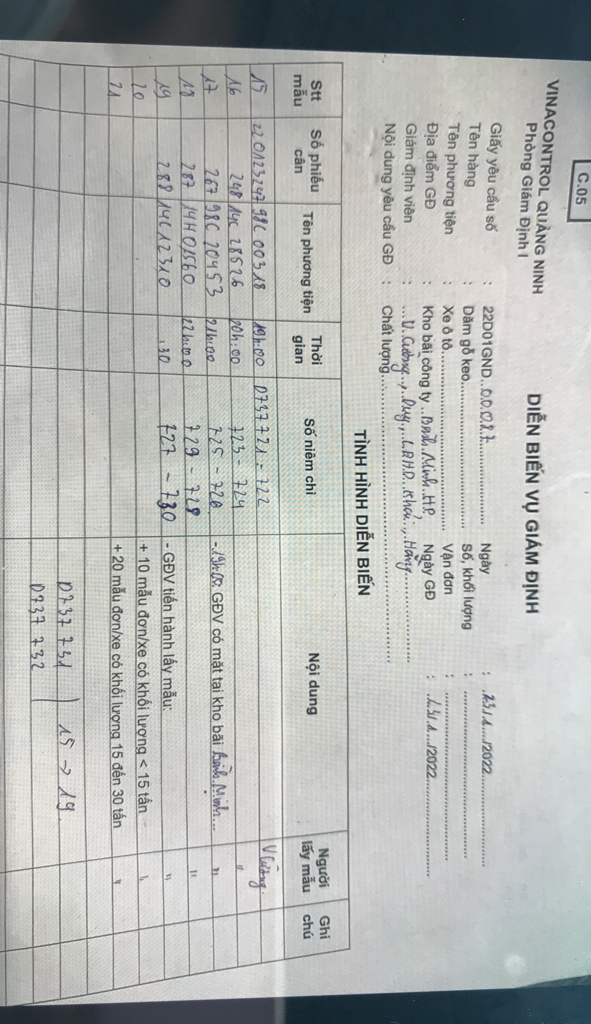 C.05
VINACONTROL QUẢNG NINH
Phòng Giám Định I
DIỄN BIẾN VỤ GIÁM ĐỊNH
Giấy yêu cầu số : 22D01GND..00087.......... Ngày : .23/1..../2022..........
Tên hàng : Dăm gỗ keo.......... Số, khối lượng : ..........
Tên phương tiện : Xe ô tô.......... Vận đơn : ..........
Địa điểm GĐ : Kho bãi công ty ..Bình Minh HP, Ngày GĐ : .23/1..../2022..........
Giám định viên : ...V. Cường., Duy., L.P.H.D. Khải., Hằng..........
Nội dung yêu cầu GĐ : Chất lượng..........
TÌNH HÌNH DIỄN BIẾN
Stt mẫu Số phiếu cân Tên phương tiện Thời gian Số niêm chì Nội dung Người lấy mẫu Ghi chú
15 220123247 98C 00318 19h00 D737721 - 722 V Cường
16 248 14C 28526 20h.00 723 - 724 "
17 267 98C 20453 21h.00 725 - 726 - 19h.00, GĐV có mặt tại kho bãi Bình Minh... "
18 287 14H 01560 22h.00 729 - 728 "
19 288 14C 12310 .30 727 - 730 - GĐV tiến hành lấy mẫu: "
20 + 10 mẫu đơn/xe có khối lượng < 15 tấn "
21 + 20 mẫu đơn/xe có khối lượng 15 đến 30 tấn "
D737 731 15 → 19
D737 732